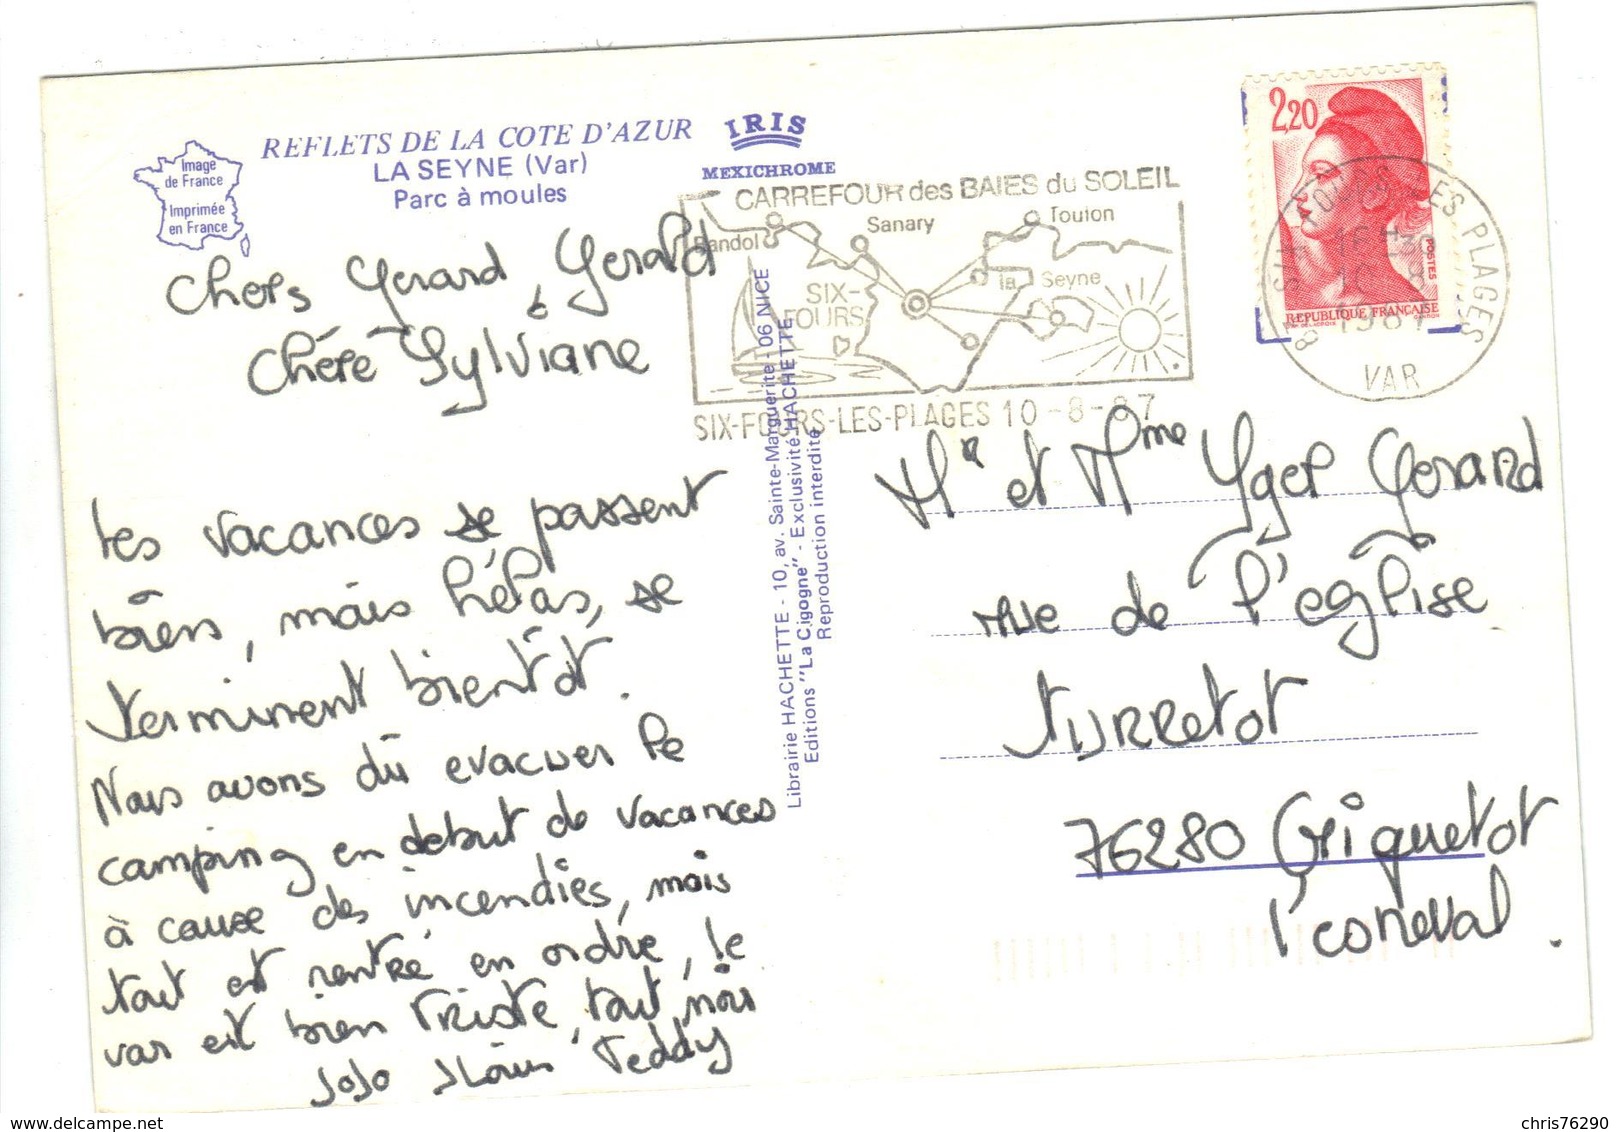 Image
de France
Imprimée
en France
REFLETS DE LA COTE D'AZUR
LA SEYNE (Var)
Parc à moules
IRIS
MEXICHROME
CARREFOUR des BAIES du SOLEIL
Bandol
Sanary
Toulon
la Seyne
SIX-
FOURS
SIX-FOURS-LES-PLAGES 10-8-87
2,20
POSTES
REPUBLIQUE FRANÇAISE
83 SIX FOURS LES PLAGES
16H30
10-8
1987
VAR
Chers Gerard, Gerald
Chère Sylviane
Les vacances se passent
biens, mais hélas, se
terminent bientôt.
Nous avons dû evacuer le
camping en debut de vacances
à cause des incendies, mais
tout est rentré en ordre, le
var est bien triste, tout noir
JoJo Teddy
Librairie HACHETTE - 10, av. Sainte-Marguerite - 06 NICE
Editions "La Cigogne" - Exclusivité HACHETTE
Reproduction interdite
Mr et Mme Yger Gerard
rue de l'eglise
turretot
76280 Criquetot
l'esneval.
delcampe.net
chris76290